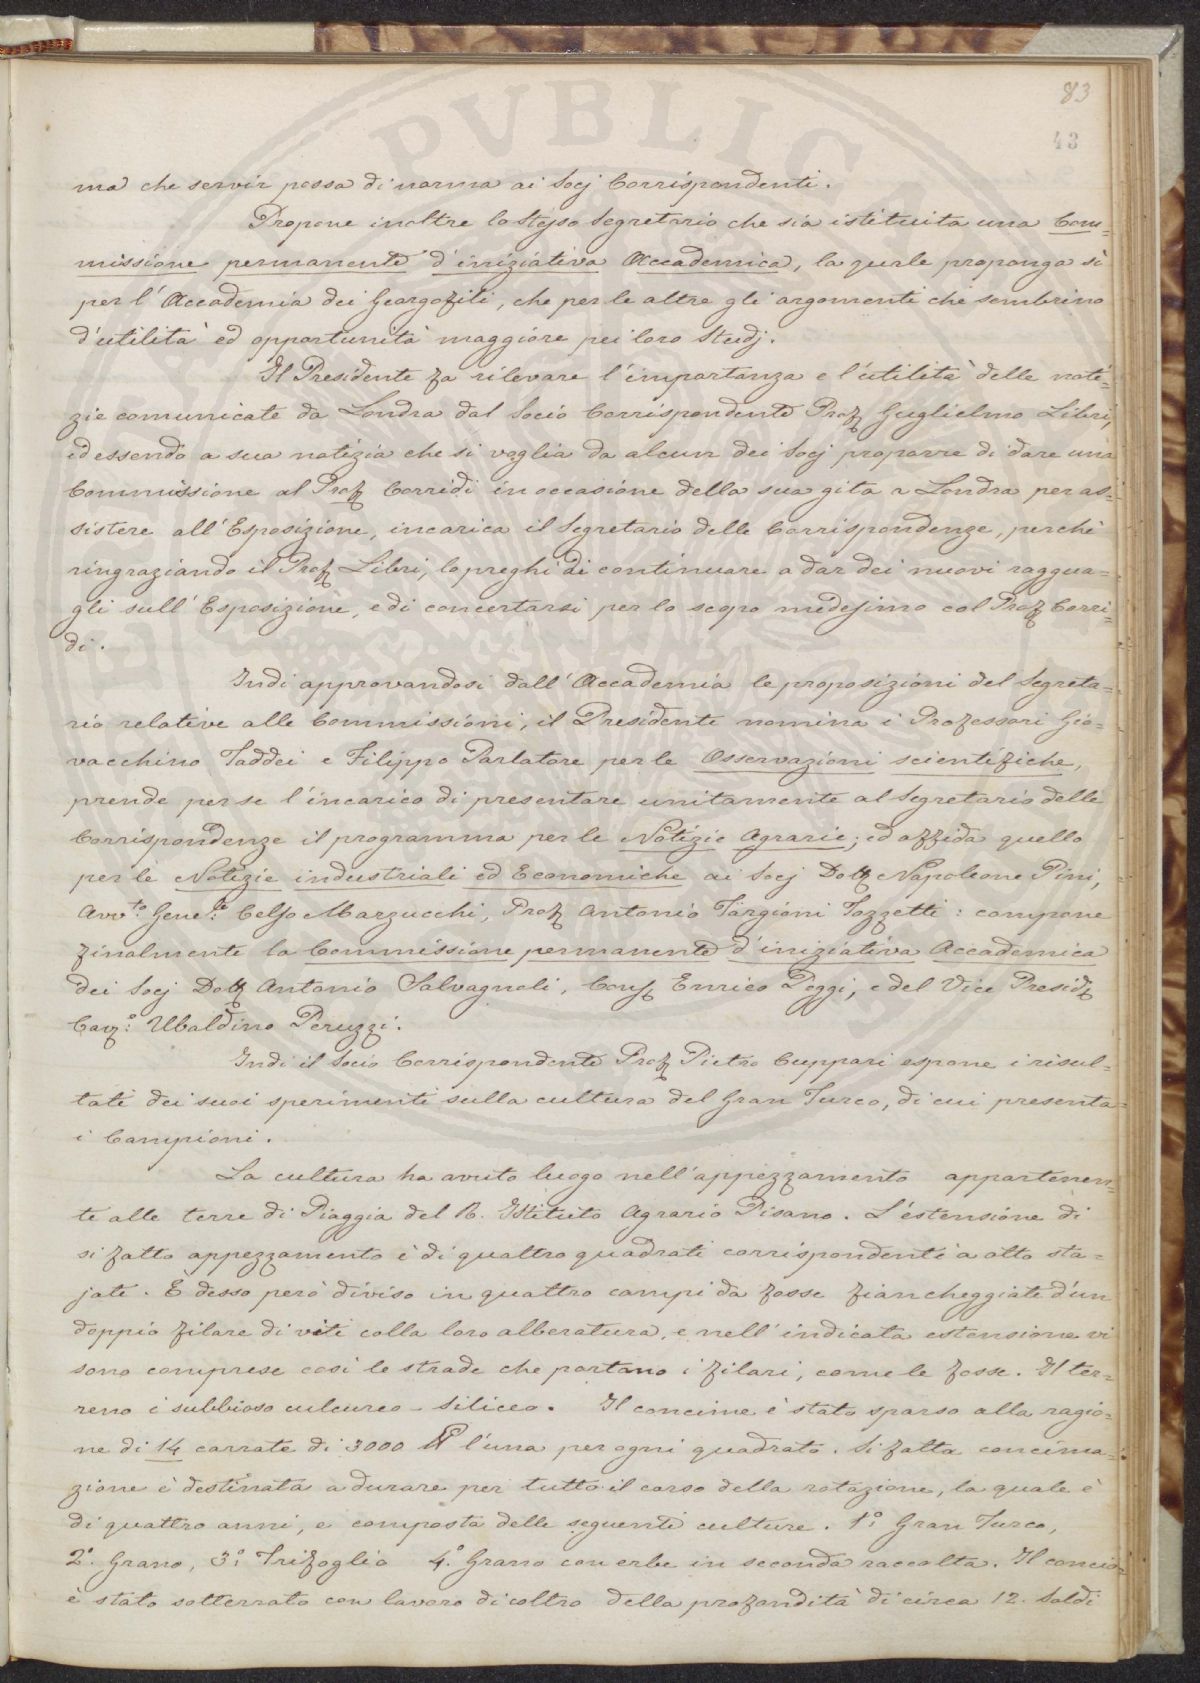 83
43
ma che servir possa di norma ai Socj Corrispondenti.
Propone inoltre lo stesso Segretario che sia istituita una Com=
missione permanente d'iniziativa Accademica, la quale proponga sì
per l'Accademia dei Georgofili, che per le altre gli argomenti che sembrino
d'utilità ed opportunità maggiore pei loro Studj.
Il Presidente fa rilevare l'importanza e l'utilità delle noti=
zie comunicate da Londra dal Socio Corrispondente Prof Guglielmo Libri,
ed essendo a sua notizia che si voglia da alcun dei Socj proporre di dare una
Commissione al Prof Corridi in occasione della sua gita a Londra per as=
sistere all'Esposizione, incarica il Segretario delle Corrispondenze, perchè
ringraziando il Prof Libri, lo preghi di continuare a dar dei nuovi raggua=
gli sull'Esposizione, e di concertarsi per lo scopo medesimo col Prof Corri=
di.
Indi approvandosi dall'Accademia le proposizioni del Segreta=
rio relative alle Commissioni, il Presidente nomina i Professori Gio=
vacchino Taddei e Filippo Parlatore per le Osservazioni scientifiche,
prende per se l'incarico di presentare unitamente al Segretario delle
Corrispondenze il programma per le Notizie Agrarie; ed affida quello
per le Notizie industriali ed Economiche ai Socj Dott Napoleone Pini,
Avvto. Genele Celso Marzucchi, Prof Antonio Targioni Tozzetti: compone
finalmente la Commissione permanente d'iniziativa Accademica
dei Socj Dott Antonio Salvagnoli, Cons Enrico Poggi, e del Vice Presid
Cavo. Ubaldino Peruzzi.
Indi il Socio Corrispondente Prof Pietro Cuppari espone i risul=
tati dei suoi sperimenti sulla cultura del Gran Turco, di cui presenta
i Campioni.
La cultura ha avuto luogo nell'appezzamento appartenen=
te alle terre di Piaggia del R. Istituto Agrario Pisano. L'estensione di
si fatto appezzamento è di quattro quadrati corrispondenti a otto sta=
jate. È desso però diviso in quattro campi da fosse fiancheggiate d'un
doppio filare di viti colla loro alberatura, e nell'indicata estensione vi
sono comprese così le strade che portano i filari, come le fosse. Il ter=
reno è subbioso culcureo - siliceo. Il concime è stato sparso alla ragio=
ne di 14 carrate di 3000 ℔ l'una per ogni quadrato. Si fatta concima=
zione è destinata a durare per tutto il corso della rotazione, la quale è
di quattro anni, e composta delle seguenti culture. 1o. Gran Turco,
2o. Grano, 3o. Trifoglio 4o. Grano con erbe in seconda raccolta. Il concio
è stato sotterrato con lavoro di coltro della profondità di circa 12. Soldi